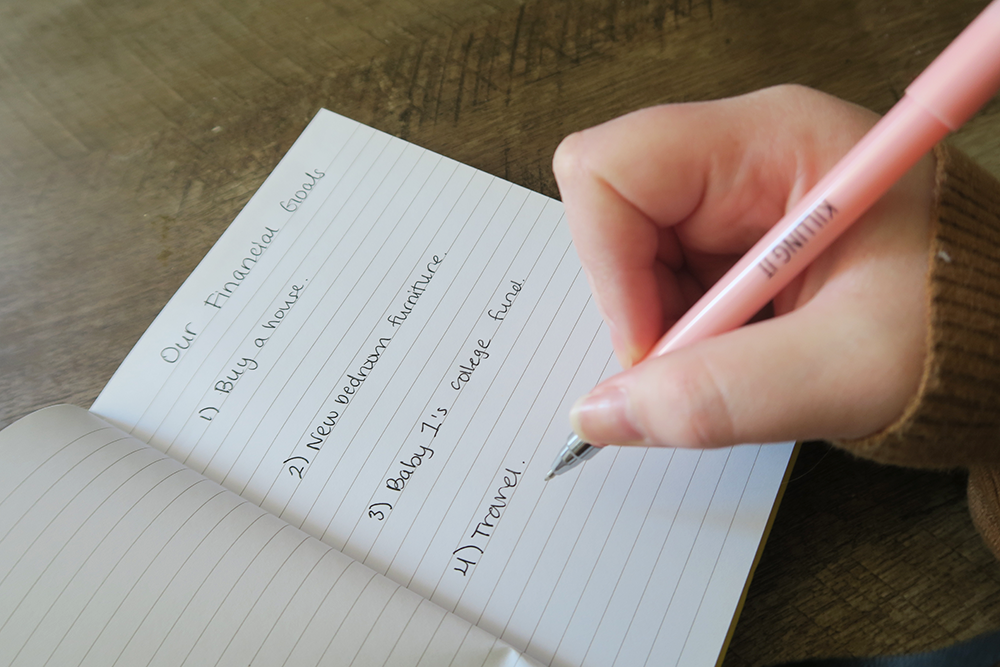 Our Financial Goals
1) Buy a house.
2) New bedroom furniture.
3) Baby 1's college fund.
4) Travel.
KILLING IT